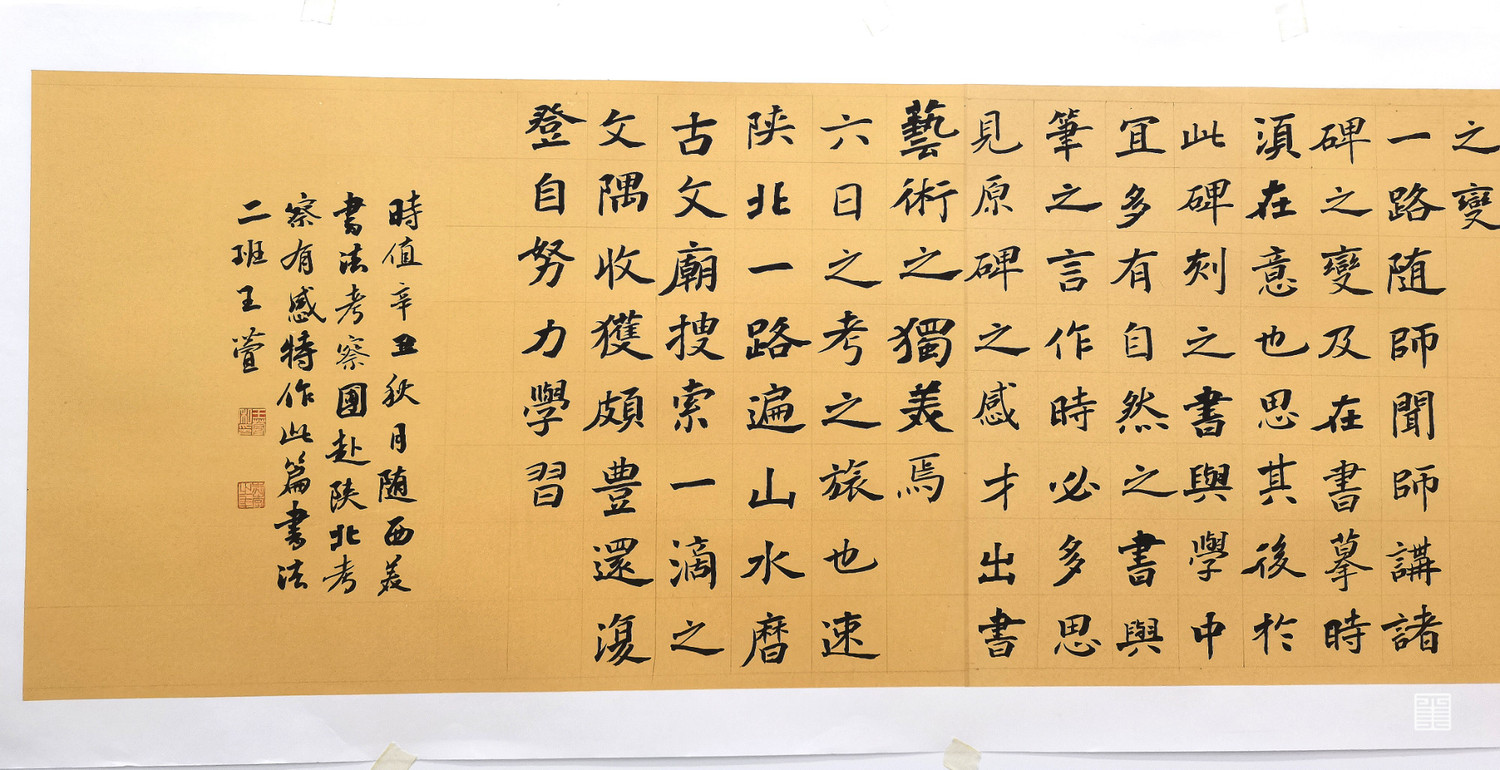 之變
一路随師聞師講諸
碑之變及在書摹時
須在意也思其後於
此碑刻之書與學中
宜多有自然之書與
筆之言作時必多思
見原碑之感才出書
藝術之獨美焉
六日之考之旅也速
陕北一路遍山水暦
古文廟搜索一滴之
文隅收獲頗豊還復
登自努力學習
時值辛丑秋月随西美
書法考察團赴陕北考
察有感特作此篇書法
二班王萱